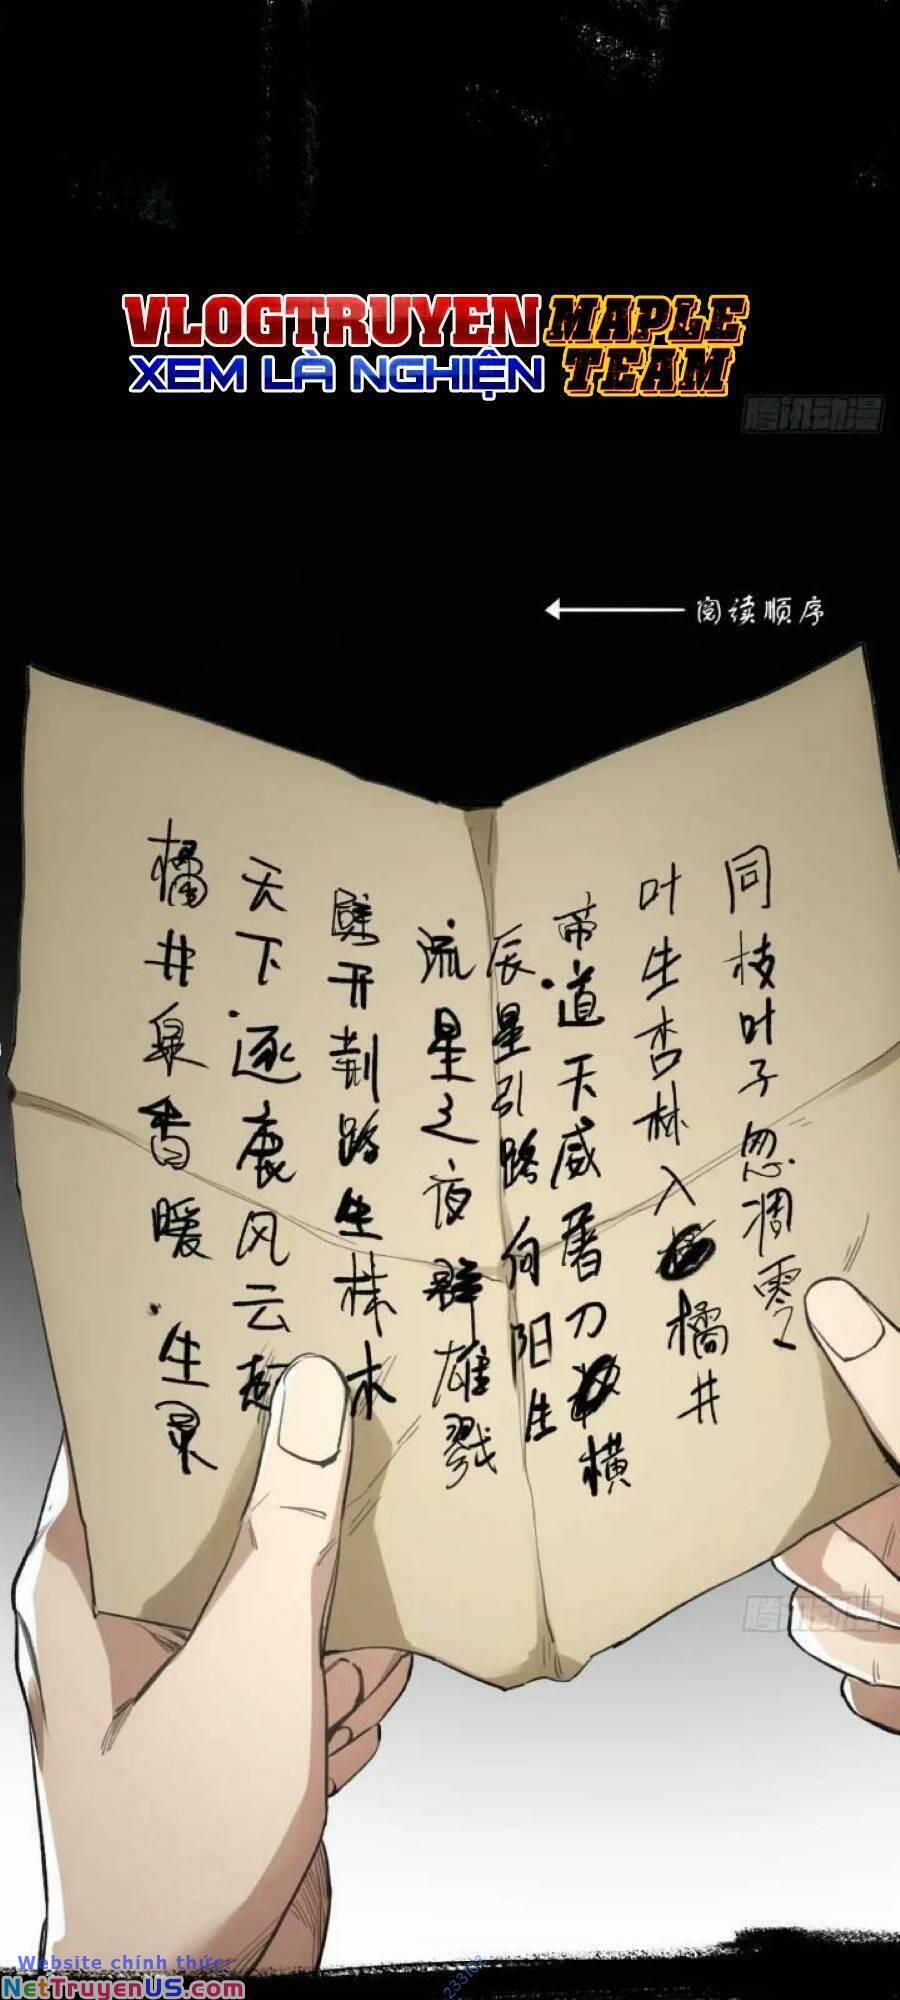 VLOGTRUYEN
XEM LÀ NGHIỆN
MAPLE
TEAM
腾讯动漫
阅读顺序
同枝叶子忽凋零
叶生杏林入橘井
帝道天威屠刀横
辰星引路向阳生
流星之夜群雄戮
劈开荆路生株木
天下逐鹿风云起
橘井泉香暖生灵
腾讯动漫
Website chính thức:
NetTruyenUS.com